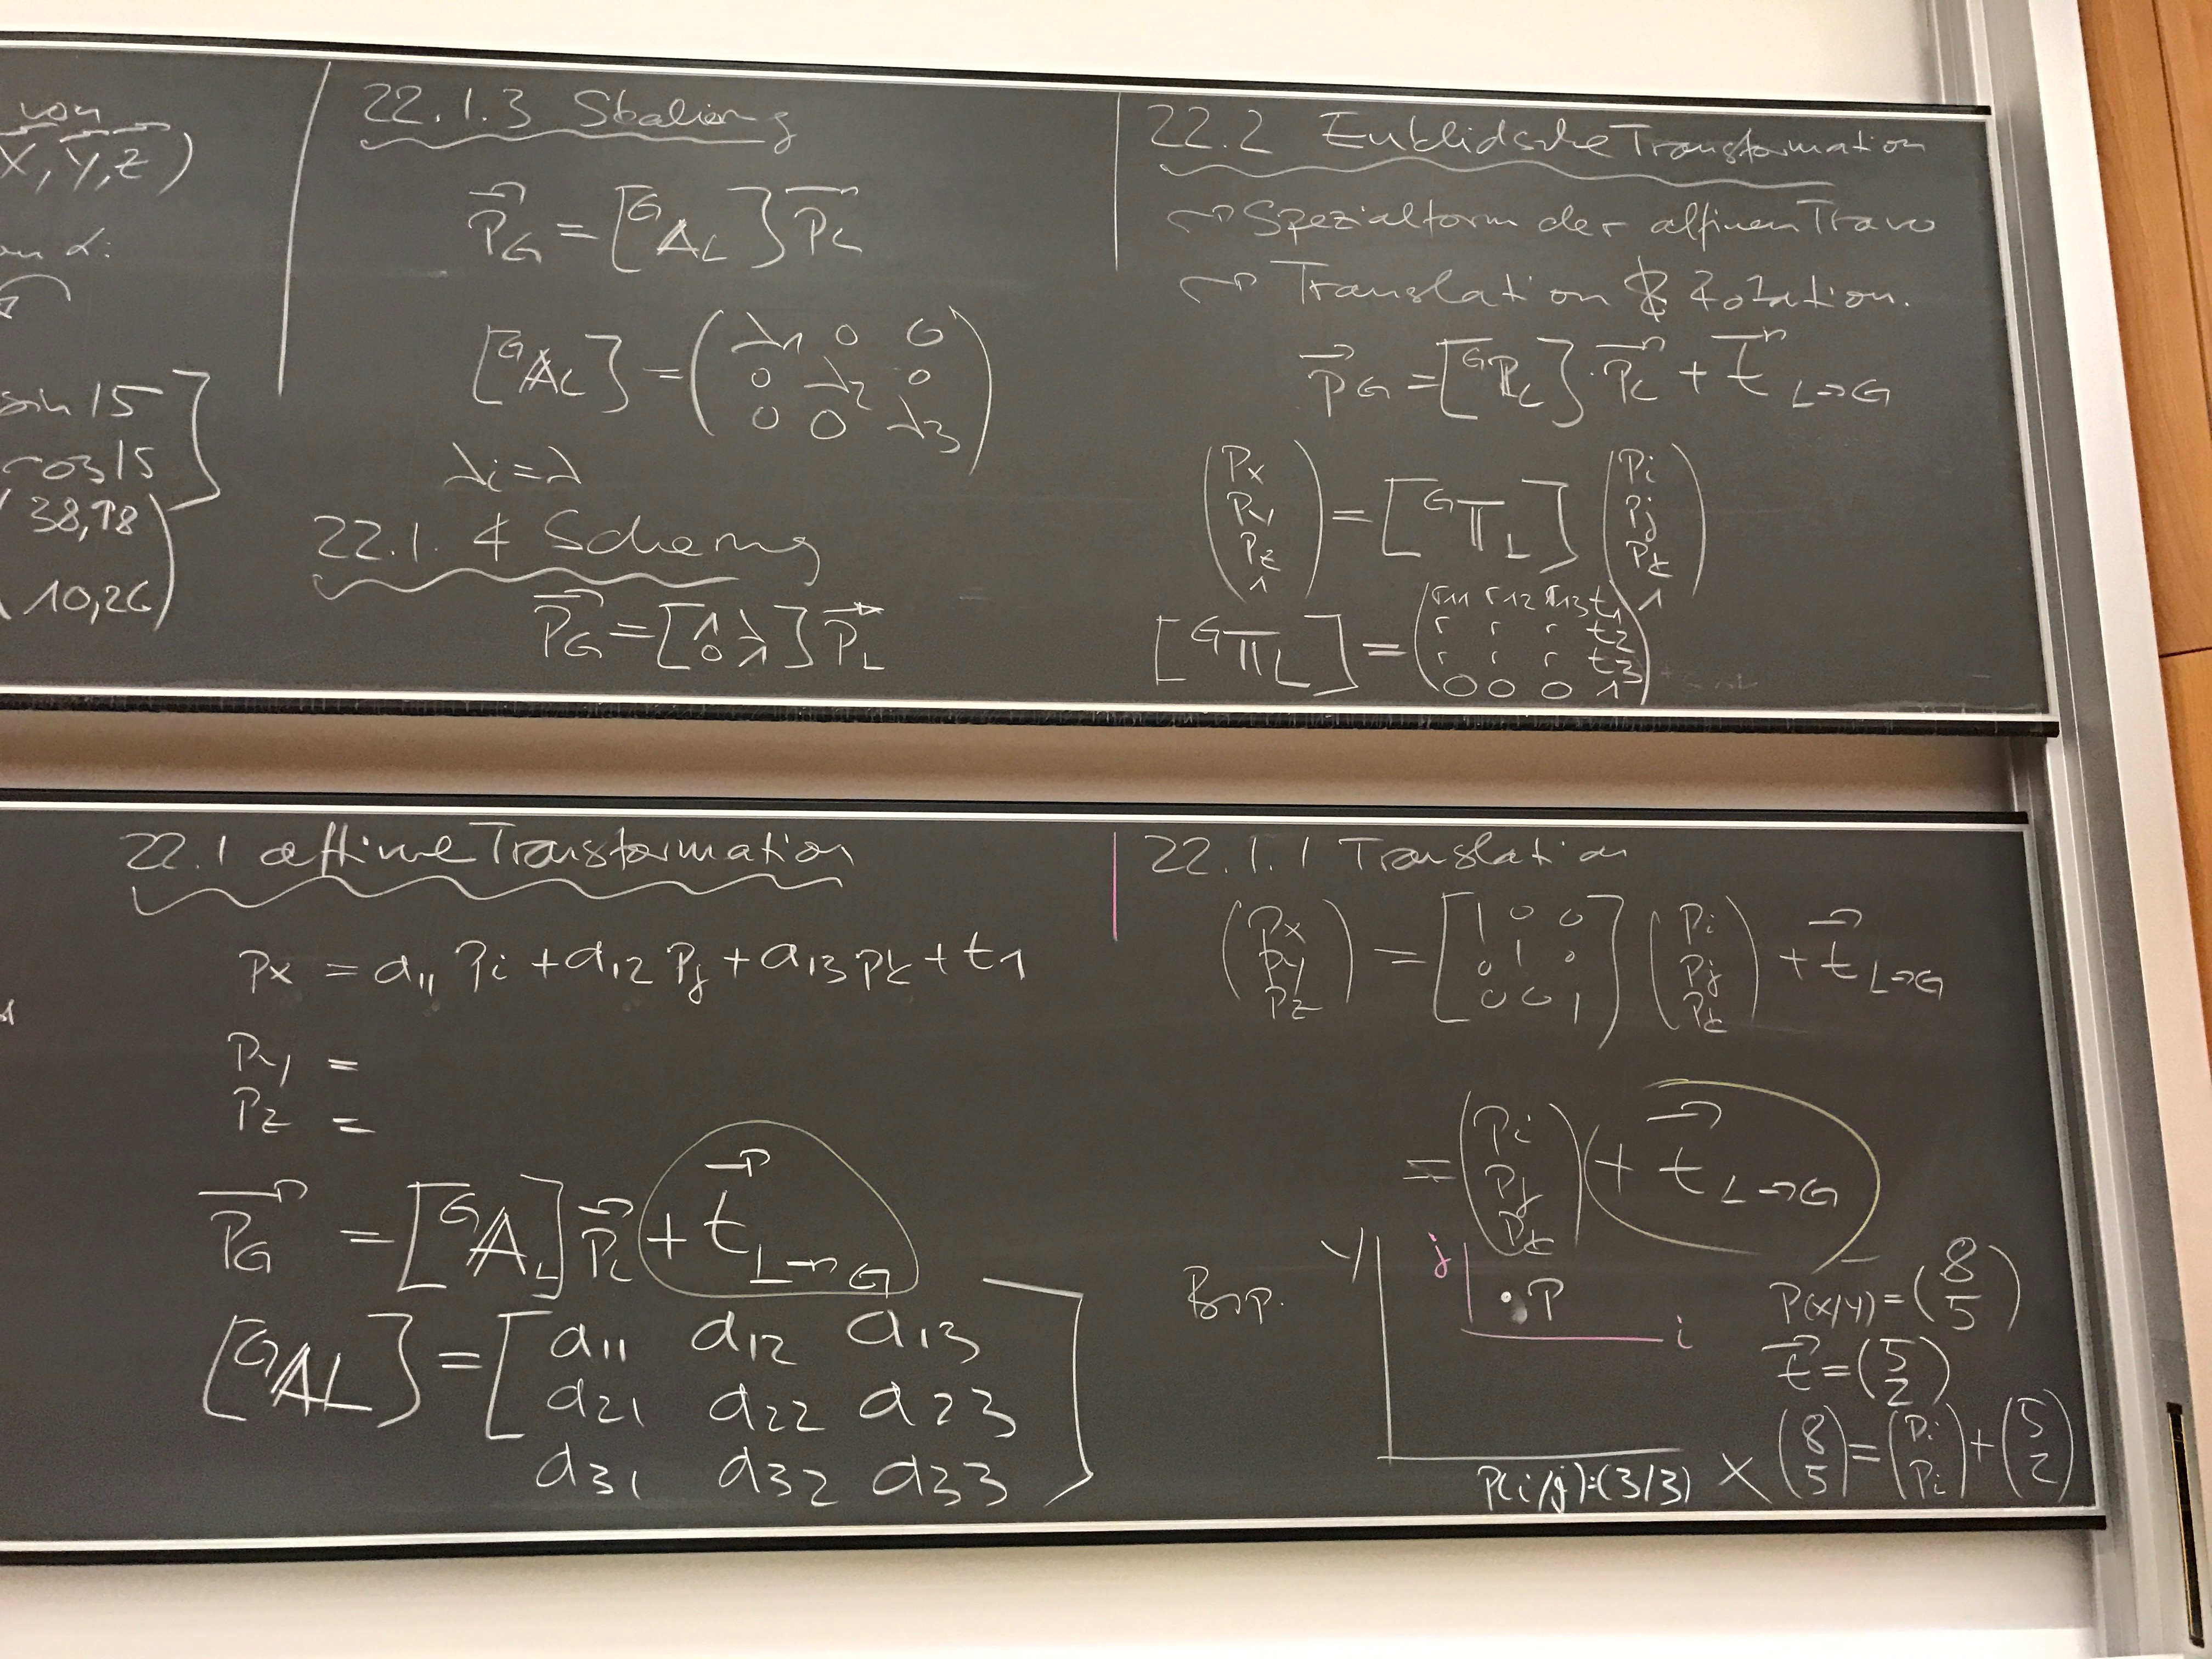 von
X, Y, Z)
α:
sin 15
cos 15
38,78
10,26
22.1.3 Skalierung
P_G = [^G A_L] P_L
[^G A_L] = (λ1 0 0
0 λ2 0
0 0 λ3)
λi = λ
22.1.4 Scherung
P_G = [1 λ
0 1] P_L
22.2 Euklidsche Transformation
→ Spezialform der affinen Travo
→ Translation & Rotation.
p_G = [^G R_L] · P_L + t L→G
(Px
Py
Pz
1) = [^G T_L] (Pi
Pj
Pk
1)
[^G T_L] = (r11 r12 r13 t1
r r r t2
r r r t3
0 0 0 1)
22.1 affine Transformation
Px = a11 Pi + a12 Pj + a13 Pk + t1
Py =
Pz =
P_G = [^G A_L] P_L + t L→G
[^G A L] = [a11 a12 a13
a21 a22 a23
a31 a32 a33]
22.1.1 Translation
(Px
Py
Pz) = [1 0 0
0 1 0
0 0 1] (Pi
Pj
Pk) + t L→G
= (Pi
Pj
Pk) + t L→G
Bsp.
y
j
P
i
X
P(i/j)=(3/3)
P(x/y) = (8
5)
t = (5
2)
(8
5) = (Pi
Pi) + (5
2)